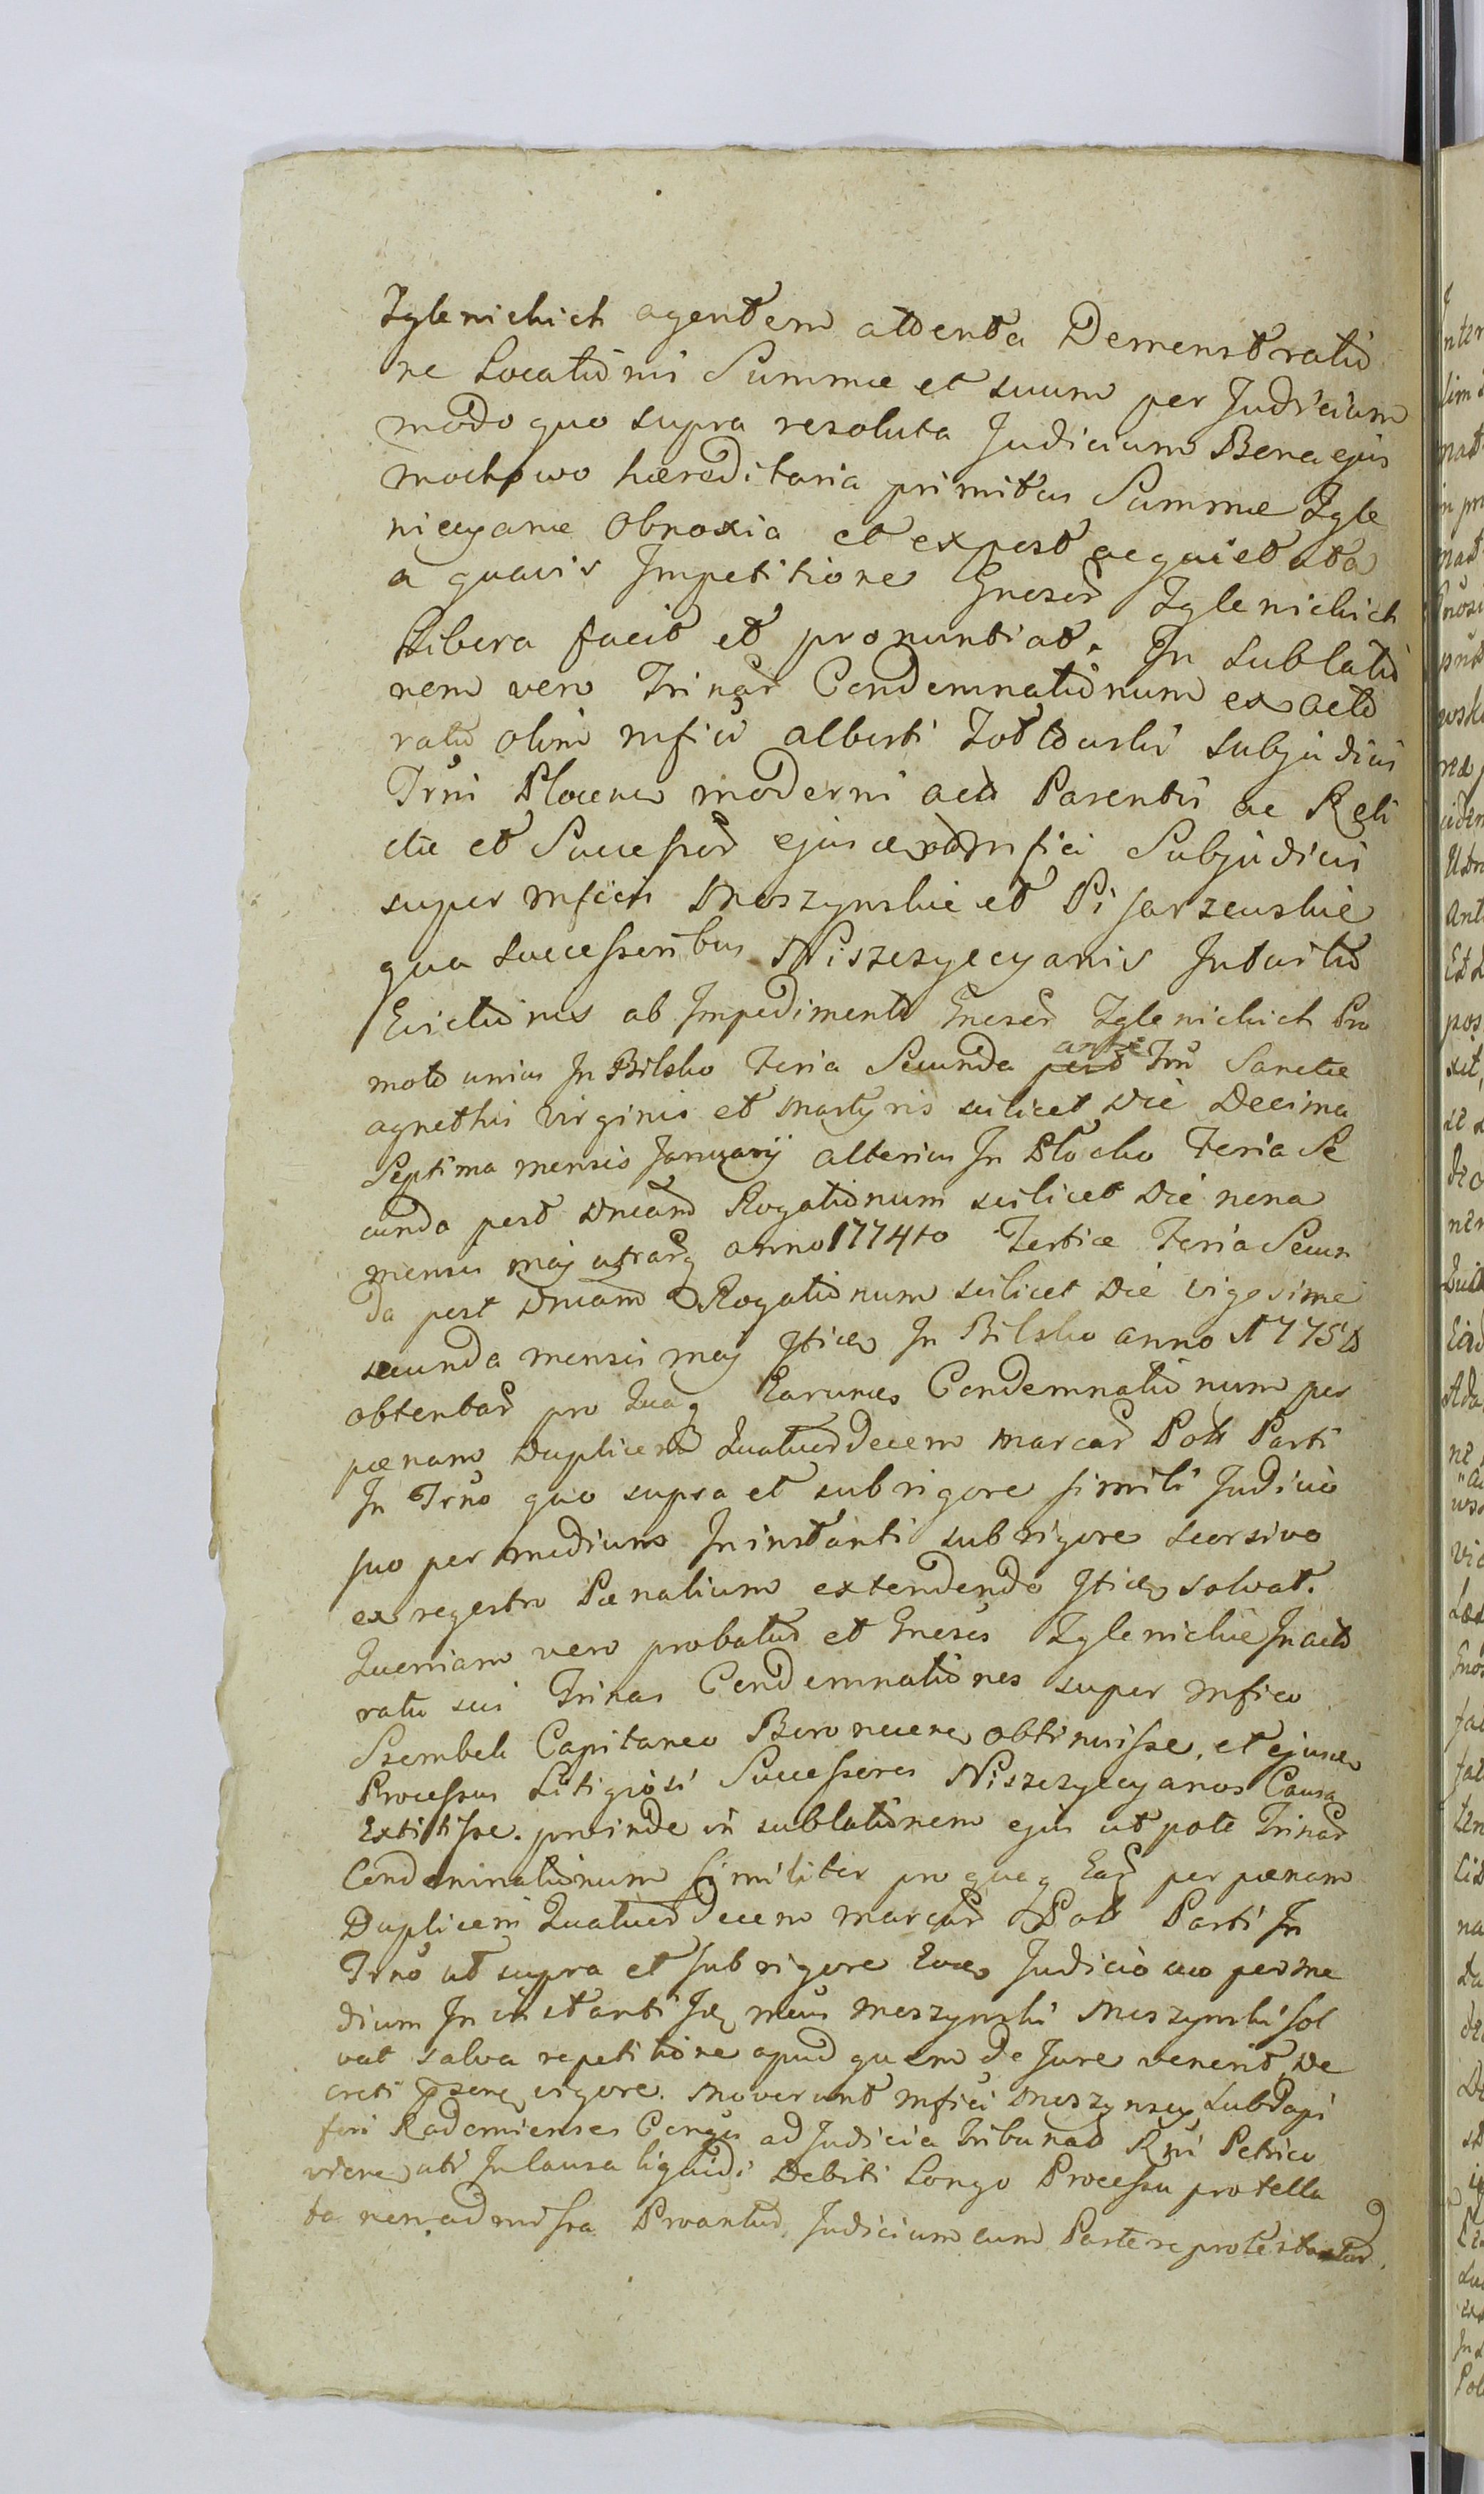 Zglenickich agentem attenta Demonstratio
ne Locationis Summæ et suum per Judicium
modo quo supra resoluta Judicium Bona ejus
Mochowo hæreditaria primitus Summæ Zgle
nicyanæ obnoxia et expost acquietata
a quavis Impetitione Gnosor Zglenickich
Libera facit et pronuntiat. In Sublatio
nem vero Trinar Condemnationum ex acto
ratu olim Mfici Alberti Subjudicis
Trni Plocen moderni act Parentis ac Reli
ctæ et Successor ejus Mfici Subjudicis
super Mficis Moszynskie et Pisarzewskie
qua Successoribus Niszczycyanis Intuitu
Evictionis ab Impedimento Gnosor Zglenickich Pro
moto unius In Bilsko Feria Secunda ante Ftũ Sanctæ
Agnethis Virginis et Martyris scilicet Die Decima
Septima mensis Januarij alterius In Plocko Feria Se
cunda post Dnicam Rogationum scilicet Die nona
mensis Maj utrarq anno 1774to Tertiæ Feria Secun
da post Dnicam Rogationum scilicet Die vigesima
secunda mensis Maj In Bilsko anno 1775to
obtentar pro Quaq Earum Condemnationum per
pænam Duplicem Quatuordecem Marcar Poll Parti
In Trno quo supra et sub rigore simili Judicio
suo per medium In instanti sub rigore seorsivo
ex regestro Pænalium extendendo solvat.
Quoniam vero probatur et Gnosos Zglenickie In acto
ratu sui Trinas Condemnationes super Mfico
Szembek Capitaneo obtinuisse, et ejusm
Processus Litigiosi Successores Niszczycyanos Causa
Extitisse. proinde in sublationem ejus utpote Trinar
Condemnationum similiter pro quaq Ear per pænam
Duplicem Quatuordecem Marcar Poll Parti In
Trno ut supra et sub rigore Judicio suo per me
dium In instanti Moszynski Moszynski sol
vat salva repetitione apud quem de Jure venerit, De
creti psenq vigore. Moverunt Mfici Moszynscy Subdapi
feri Radomienses Conges ad Judicia Tribunal Rni Petrico
vien, uti In causa liquidi Debiti Longo Processu protella
ta non admissa. Judicium cum Parte reprotestatur.